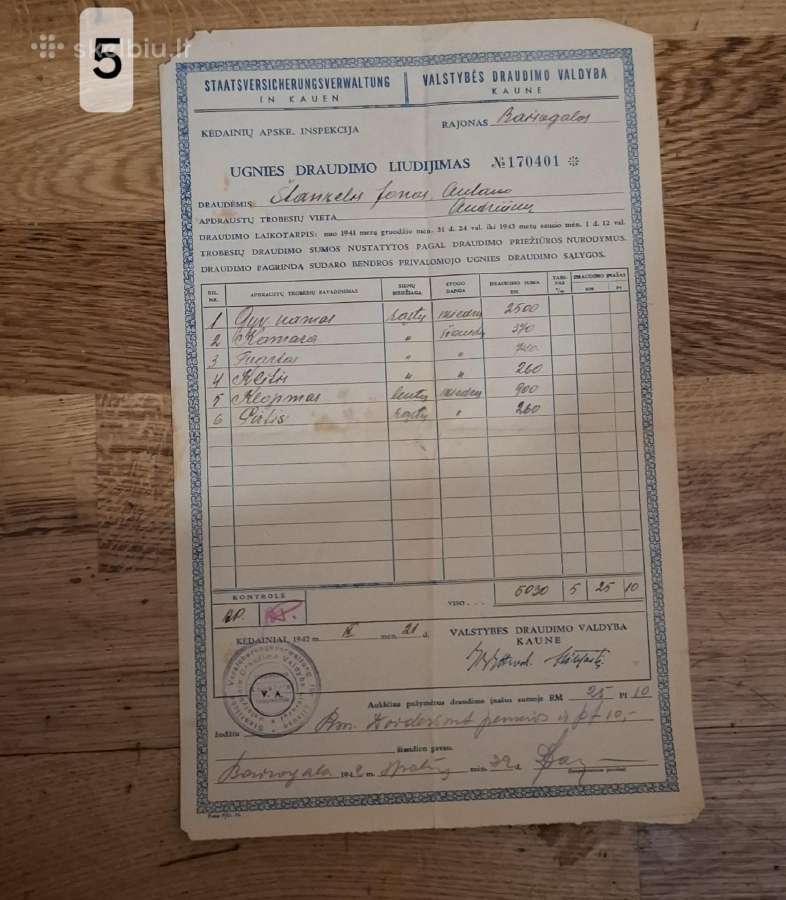 skelbiu.lt
5
STAATSVERSICHERUNGSVERWALTUNG
IN KAUEN
VALSTYBĖS DRAUDIMO VALDYBA
KAUNE
KĖDAINIŲ APSKR. INSPEKCIJA
RAJONAS Baisogalos
UGNIES DRAUDIMO LIUDIJIMAS № 170401
DRAUDĖJAS Jonas, Antano
APDRAUSTŲ TROBESIŲ VIETA
DRAUDIMO LAIKOTARPIS: nuo 1941 metų gruodžio mėn. 31 d. 24 val. iki 1943 metų sausio mėn. 1 d. 12 val.
TROBESIŲ DRAUDIMO SUMOS NUSTATYTOS PAGAL DRAUDIMO PRIEŽIŪROS NURODYMUS.
DRAUDIMO PAGRINDĄ SUDARO BENDROS PRIVALOMOJO UGNIES DRAUDIMO SĄLYGOS.
EIL. NR. APDRAUSTŲ TROBESIŲ PAVADINIMAS SIENŲ MEDŽIAGA STOGO DANGA DRAUDIMO SUMA RM DRAUDIMO ĮNAŠAS RM PF
1 Gyv. namas rąstų 2500
2 Kamara " šiaudų 370
3 Tvartas " " 740
4 Klėtis " " 260
5 Kluonas lentų 900
6 Pirtis rąstų " 260
KONTROLĖ
VISO . . . 5030 5 25 10
KĖDAINIAI, 1942 m. mėn. 21 d.
VALSTYBĖS DRAUDIMO VALDYBA
KAUNE
V. A.
Aukščiau pažymėtus draudimo įnašus sumoje RM 25 Pf 10
žodžiu Rm. pf 10,-
šiandien gavau.
Baisogala 1942 m. mėn. d.